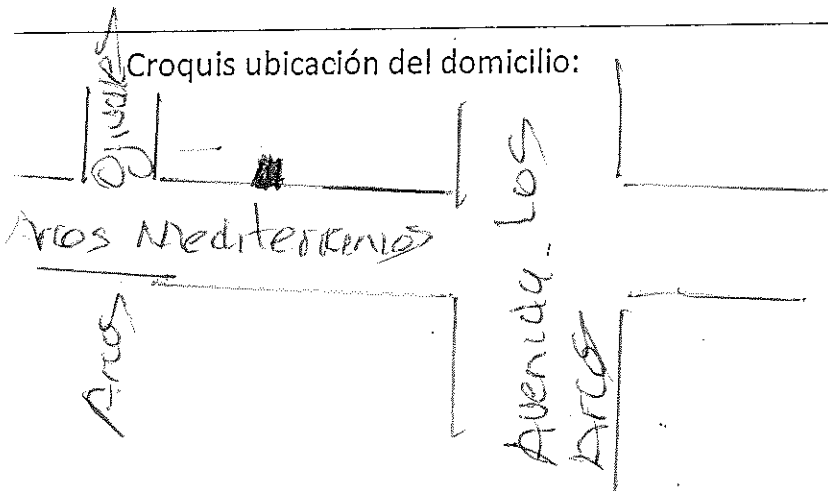 Croquis ubicación del domicilio:
Arcos Ojivales
Arcos Mediterranios
Avenida Los
Arcos